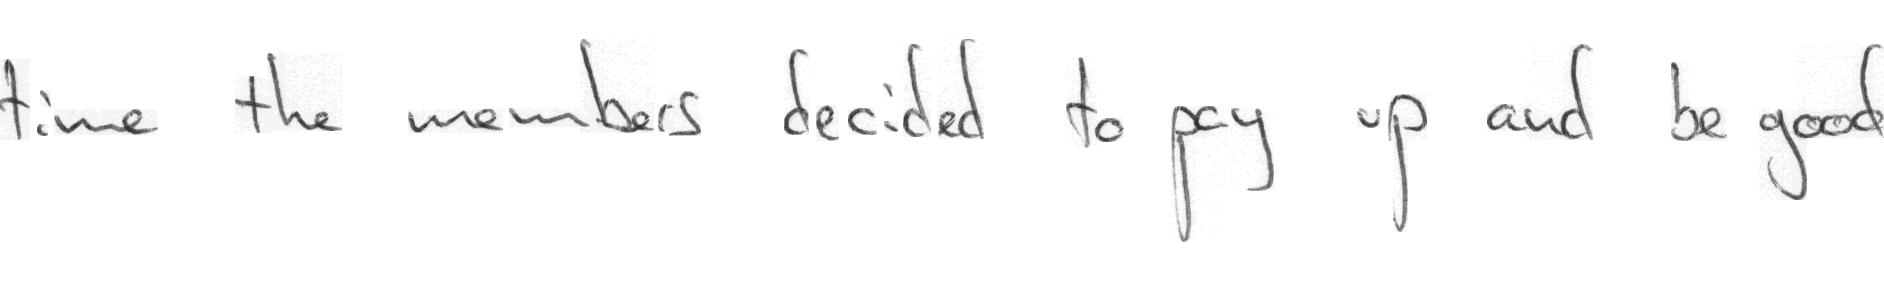 time the members decided to pay up and be good